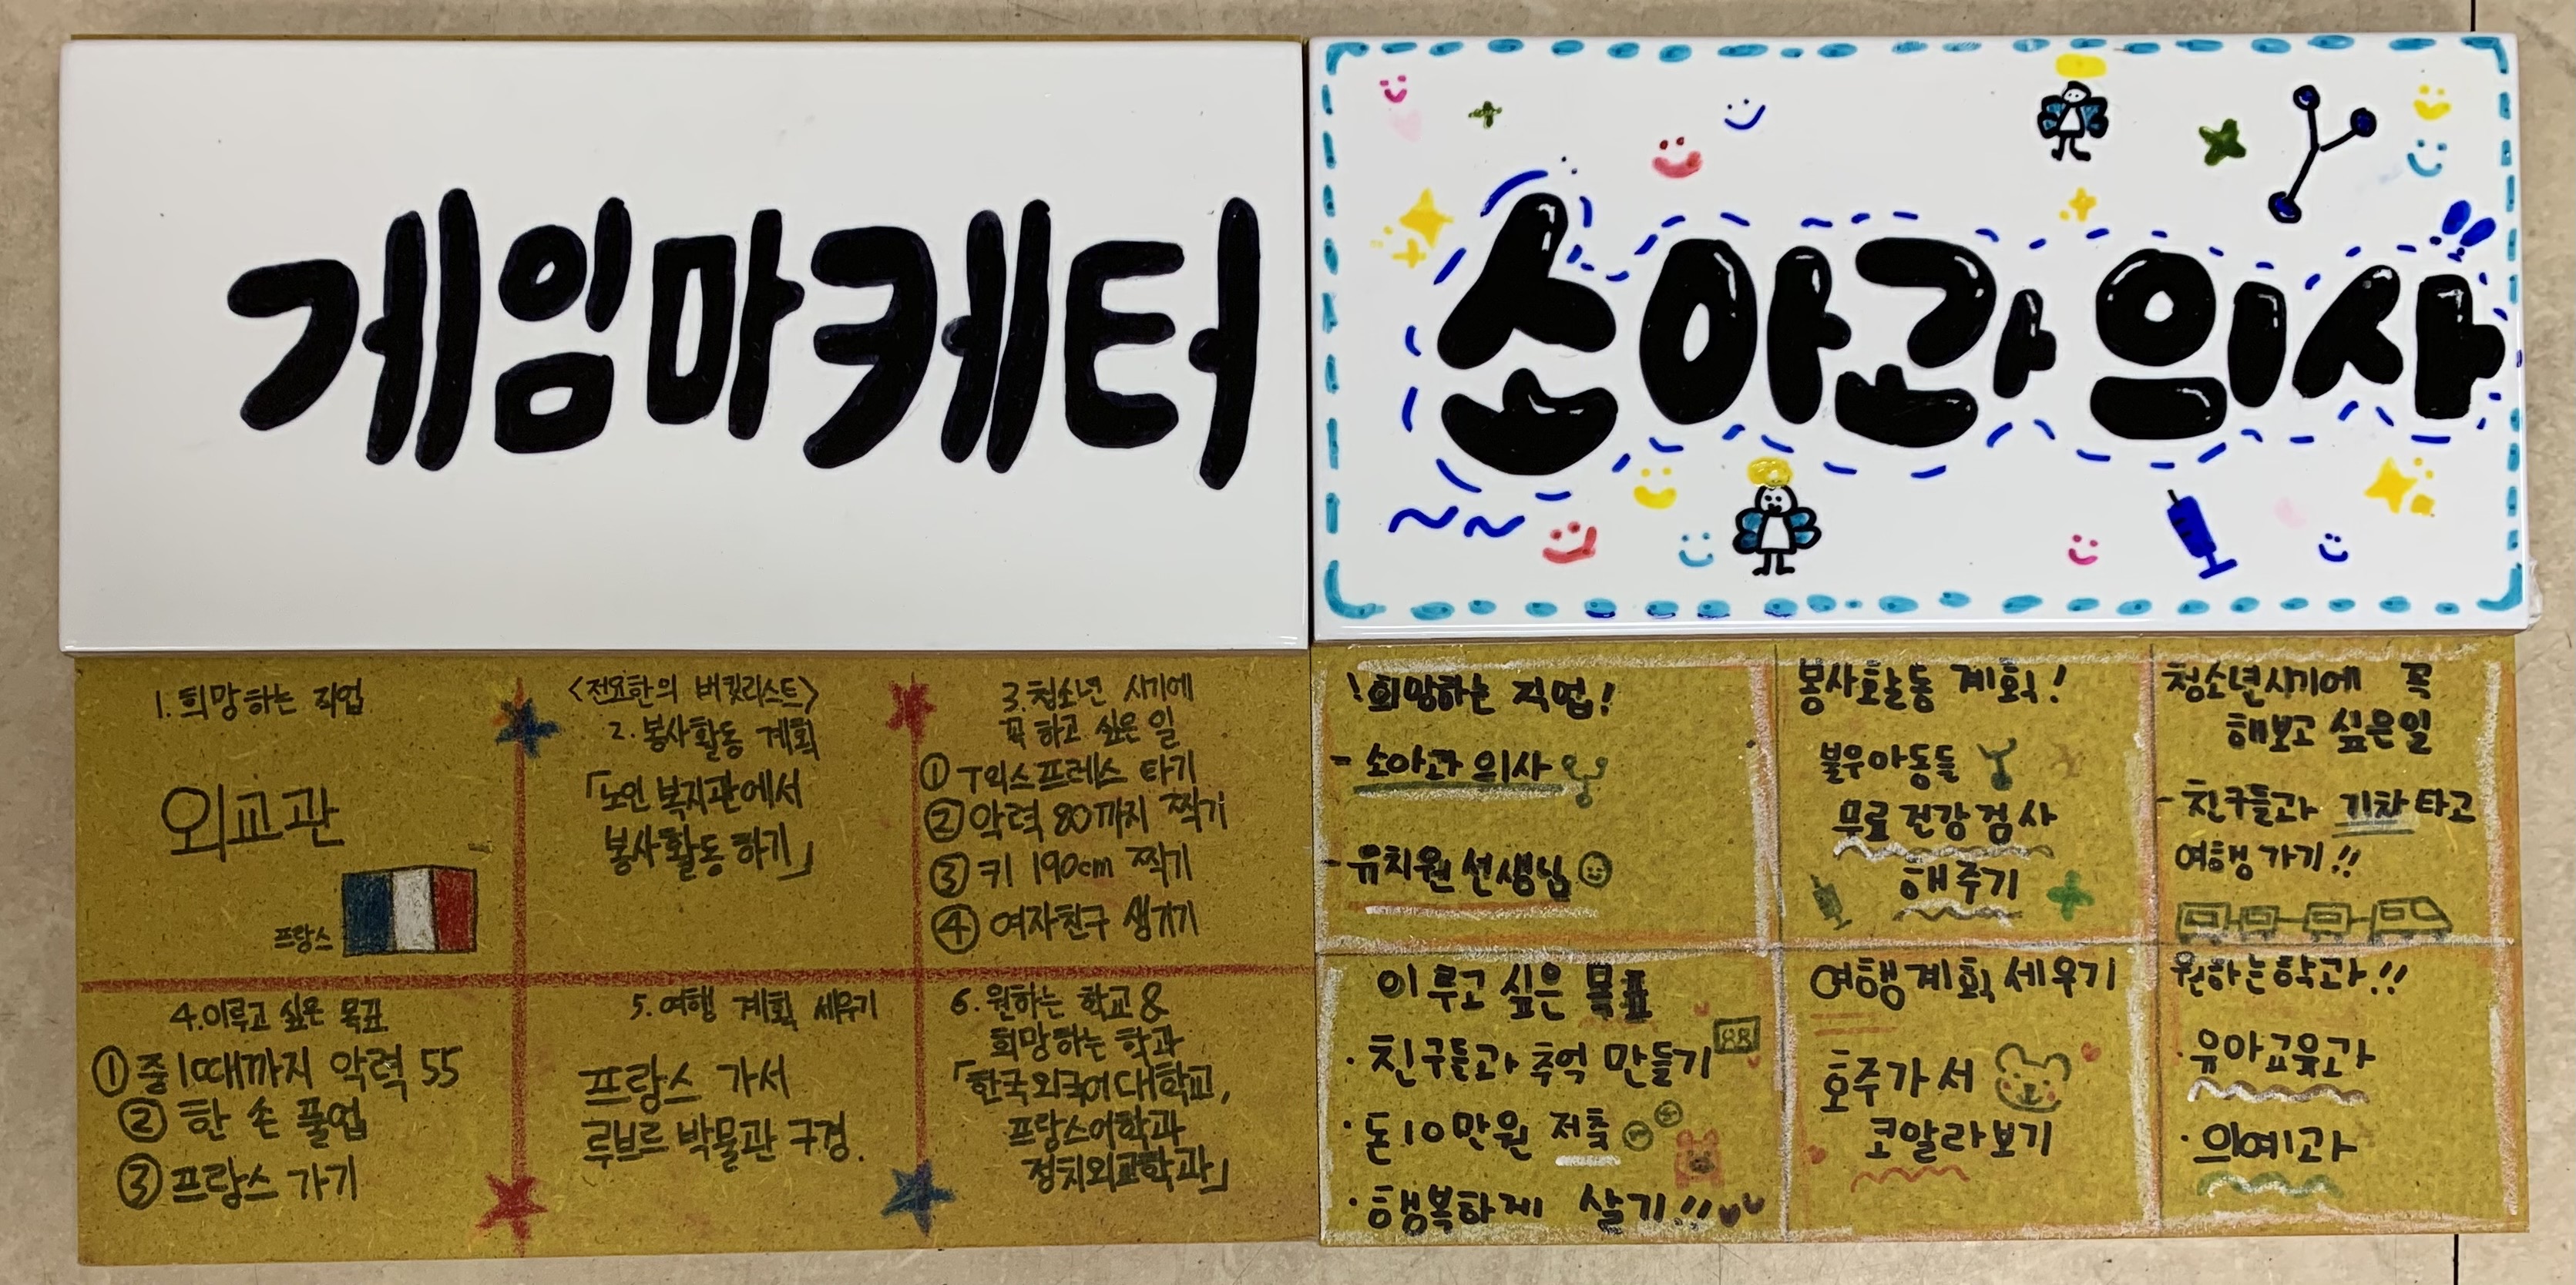 게임마케터
소아과 의사
1. 희망하는 직업
외교관
프랑스
<전요한의 버킷리스트>
2. 봉사활동 계획
「노인 복지관에서
봉사활동 하기」
3. 청소년 시기에
꼭 하고 싶은 일
① T익스프레스 타기
② 악력 80까지 찍기
③ 키 190cm 찍기
④ 여자친구 생기기
4. 이루고 싶은 목표
① 중1때까지 악력 55
② 한 손 풀업
③ 프랑스 가기
5. 여행 계획 세우기
프랑스 가서
루브르 박물관 구경.
6. 원하는 학교 &
희망하는 학과
「한국외국어대학교,
프랑스어학과
정치외교학과」
! 희망하는 직업!
- 소아과 의사
- 유치원 선생님
봉사활동 계획!
불우아동들
무료 건강검사
해주기
청소년시기에 꼭
해보고 싶은일
- 친구들과 기차타고
여행 가기!!
이루고 싶은 목표
· 친구들과 추억 만들기
· 돈10만원 저축
· 행복하게 살기!!
여행계획 세우기
호주가서
코알라보기
원하는학과!!
· 유아교육과
· 의예과